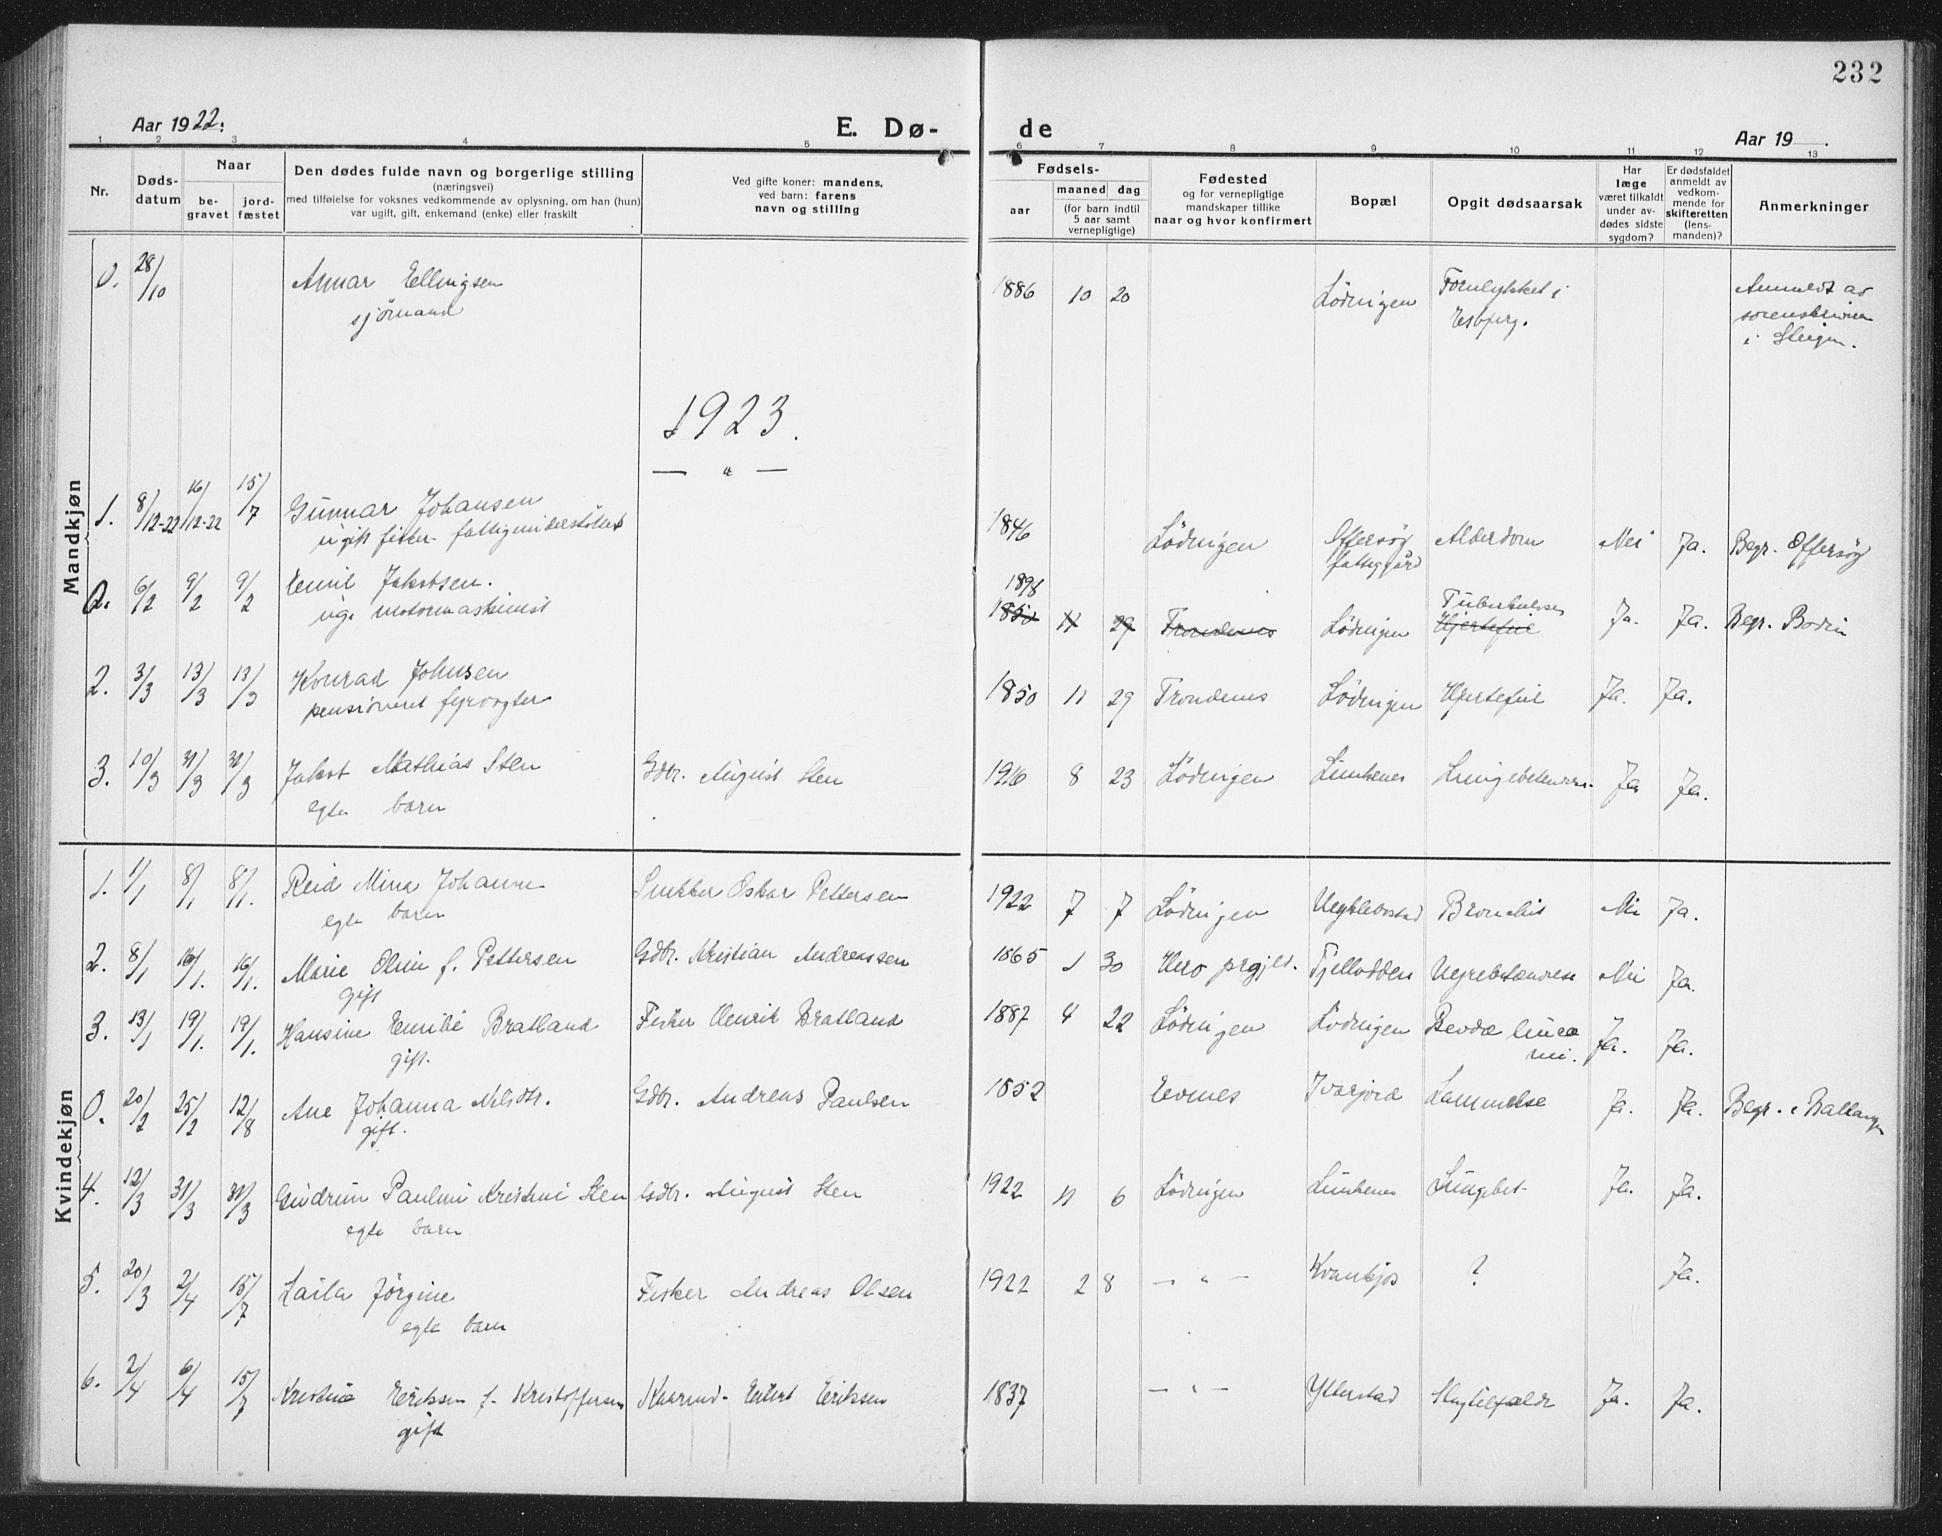 232
Aar 1922.
E. Dø-
de
Aar 19 .
1 2 3 4 5 6 7 8 9 10 11 12 13
Nr.
Døds-
datum
Naar
be-
gravet
jord-
fæstet
Den dødes fulde navn og borgerlige stilling
(næringsvei)
med tilføielse for voksnes vedkommende av oplysning, om han (hun)
var ugift, gift, enkemand (enke) eller fraskilt
Ved gifte koner: mandens,
ved barn: farens
navn og stilling
Fødsels-
aar
maaned dag
(for barn indtil
5 aar samt
vernepligtige)
Fødested
og for vernepligtige
mandskaper tillike
naar og hvor konfirmert
Bopæl
Opgit dødsaarsak
Har
læge
været tilkaldt
under av-
dødes sidste
sygdom?
Er dødsfaldet
anmeldt av
vedkom-
mende for
skifteretten
(lens-
manden)?
Anmerkninger
Mandkjøn
0. 28/10 Annar Ellingsen 1886 10 20 Lödingen Forulykket i Anmeldt av
sjømand Esbjerg. sorenskriveren
i Steigen.
1923.
— " —
1. 8/12-22 16/12-22 15/7 Gunnar Johansen 1846 Lödingen Offersøy Alderdom Nei Ja. Begr. Offersøy
ugift fisker fattigunderstöttet fattiggård
0. 6/2 9/2 9/2 Emil Jakobsen. 1898 1850 11 29 Trondenes Lödingen Tuberkulose Hjertefeil Ja. Ja. Begr. Bodin
ug. motormaskinist
2. 3/3 13/3 13/3 Konrad Johnsen 1850 11 29 Trondenes Lödingen Hjertefeil Ja. Ja.
pensioneret fyrvogter
3. 10/3 31/3 31/3 Jakob Mathias Sten Gdbr. August Sten 1916 8 23 Lödingen Ja Ja.
egte barn
Kvindekjøn
1. 1/1 8/1 8/1. Reid Mina Johanne Snekker Oskar Pettersen 1922 7 7 Lödingen Bronchit Nei Ja.
egte barn
2. 8/1 16/1. 16/1. Marie Oline f. Pettersen Gdbr. Kristian Andreassen 1865 1 30 Hero prgjld. Fjelldodden Nei Ja.
gift
3. 13/1 19/1. 19/1. Hansine Emilie Bratland Fisker Henrik Bratland 1887 4 22 Lödingen Lödingen Ja. Ja.
gift.
0. 20/2 25/2 12/8 Ane Johanna Nilsdtr. Gdbr. Andreas Paulsen 1852 Evenes Ivarjord Lammelse Ja. Ja. Begr. i Ballangen
gift.
4. 12/3 31/3 31/3 Gudrun Pauline Kristine Sten Gdbr. August Sten 1922 11 6 Lödingen Lungebet. Ja. Ja.
egte barn
5. 20/3 2/4 15/7 Laila Jørgine Fisker Andreas Olsen 1922 2 8 — " — ? Ja.
egte barn
6. 2/4 6/4 15/7 Kristine Eriksen f. Kristoffersen Eilert Eriksen 1837 — " — Ytterstad Slagtilfælde Ja. Ja.
gift